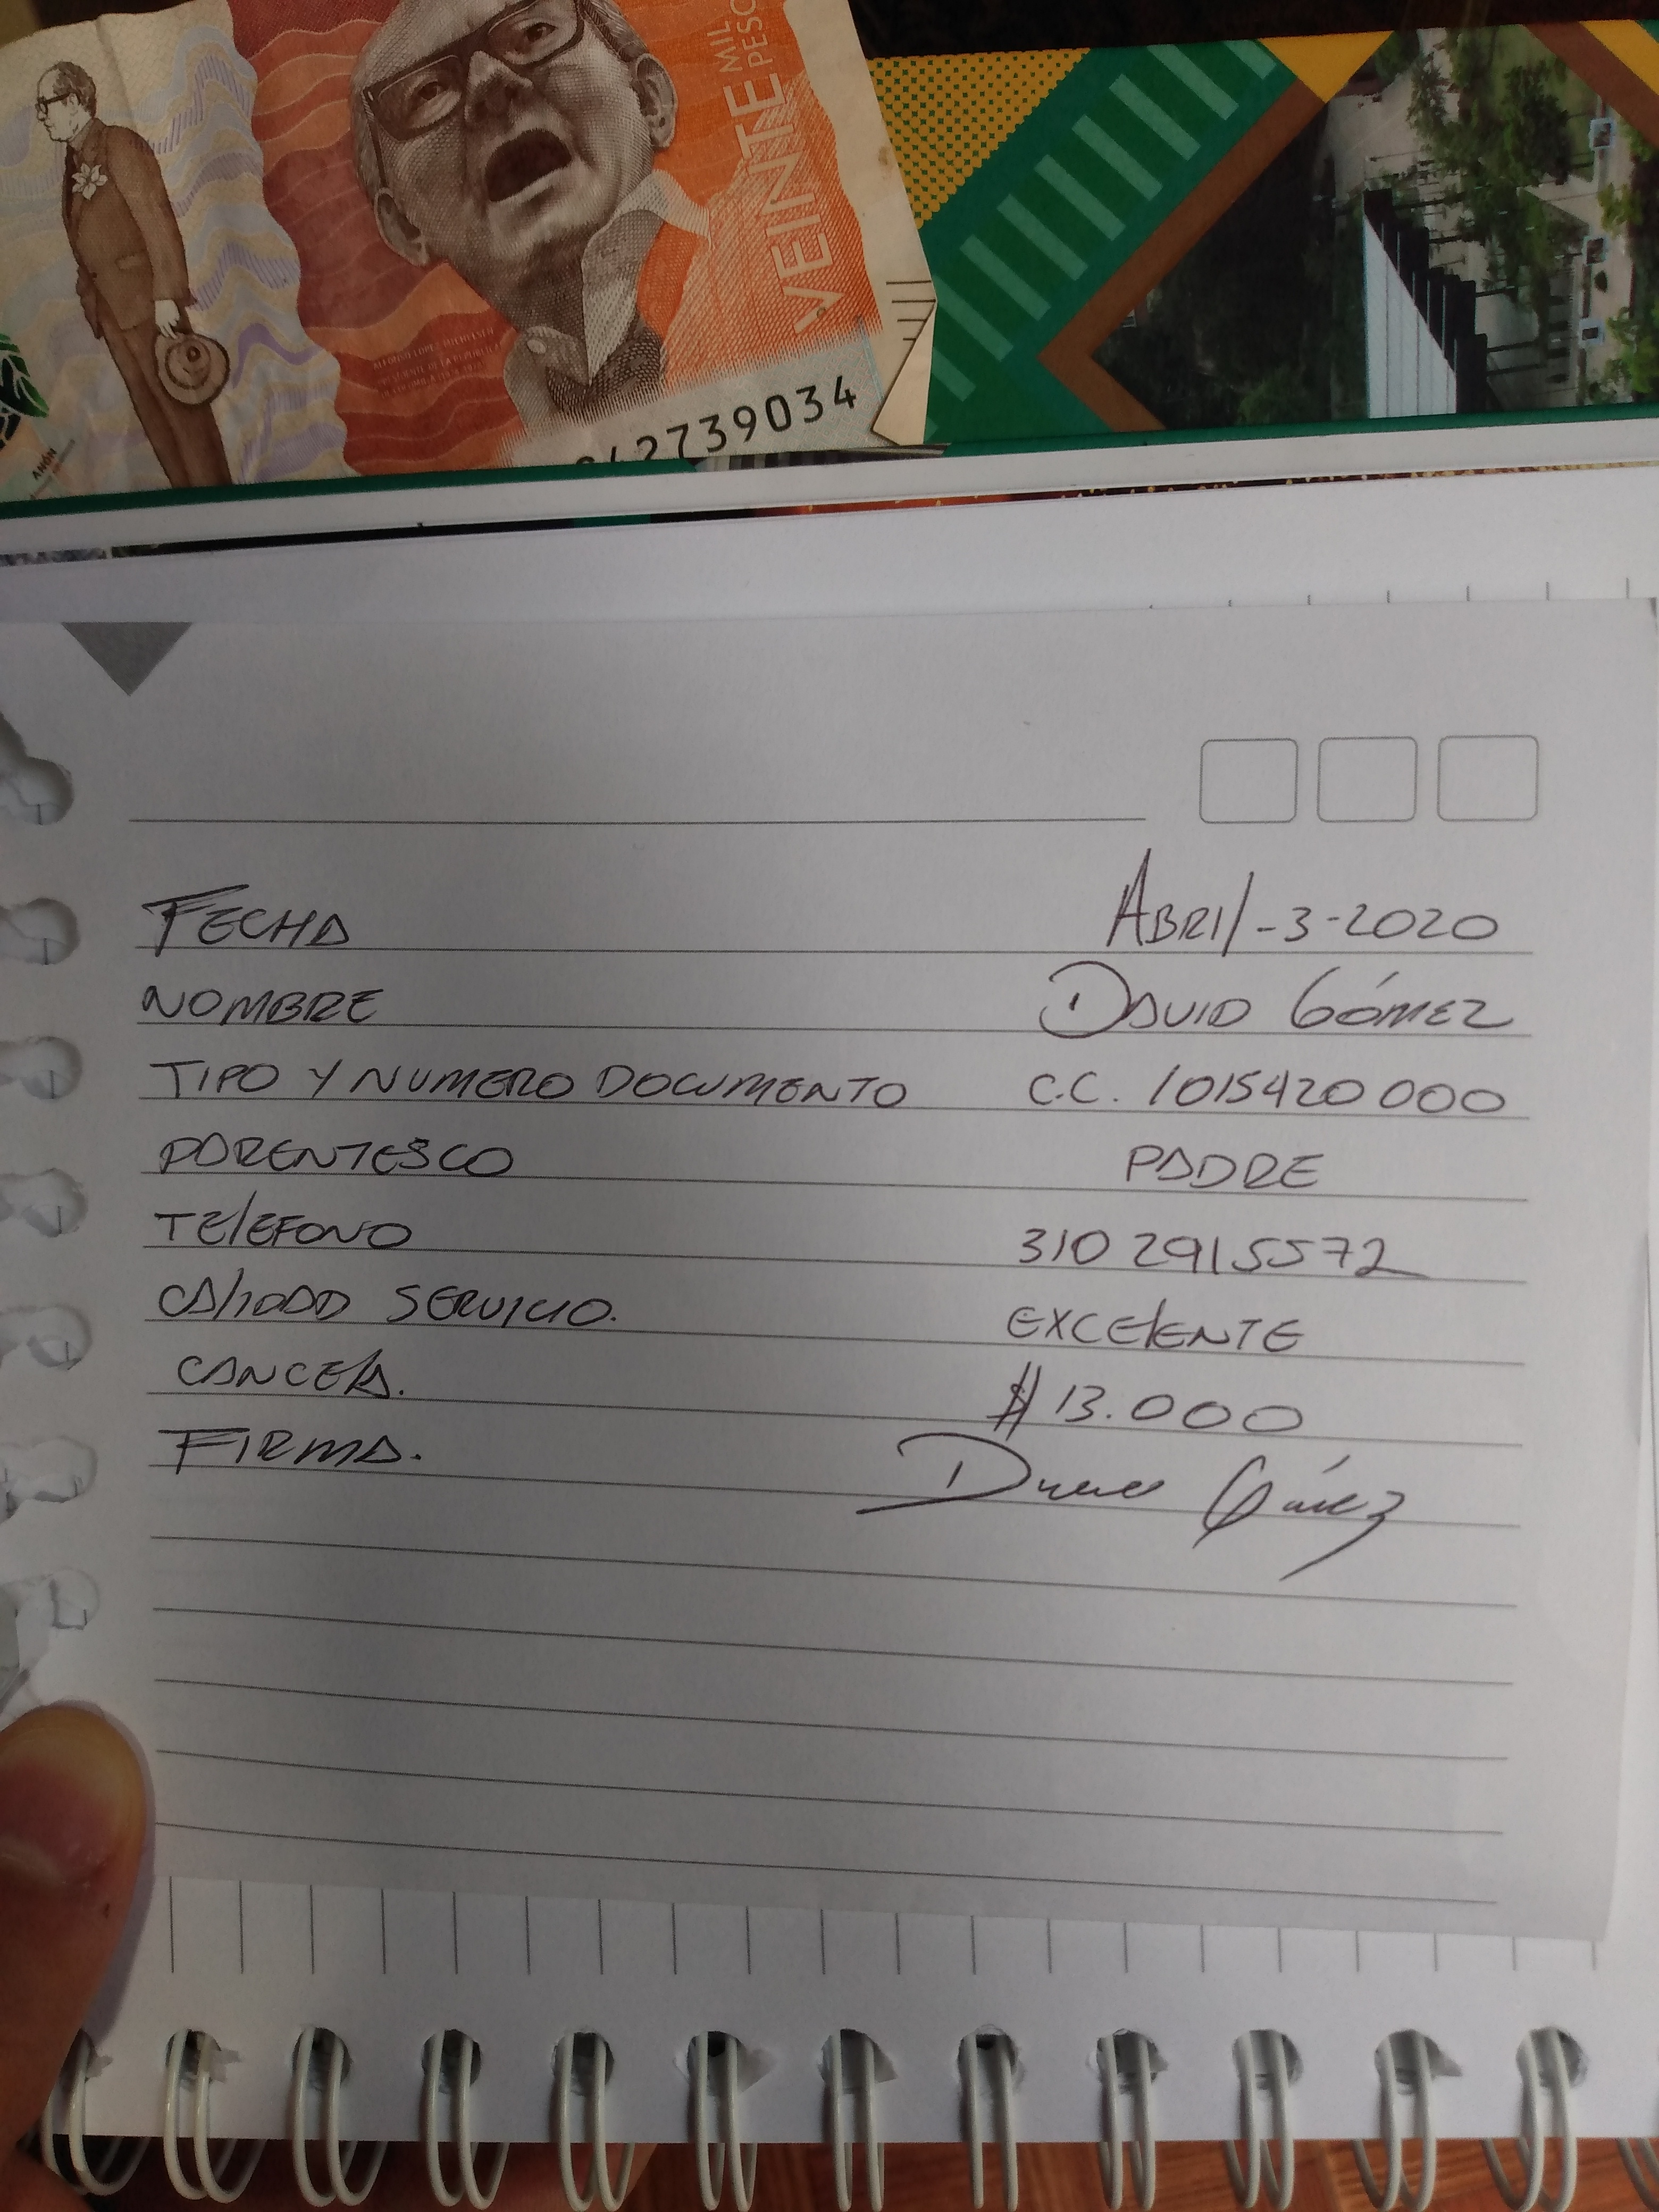 MIL
PESO
VEINTE
42739034
FECHA ABRIL-3-2020
NOMBRE DAVID GÓMEZ
TIPO Y NUMERO DOCUMENTO C.C. 1015420000
PORENTESCO PADRE
TELEFONO 310 2915572
CALIDAD SERVICIO. EXCELENTE
CANCELA. $13.000
FIRMA.